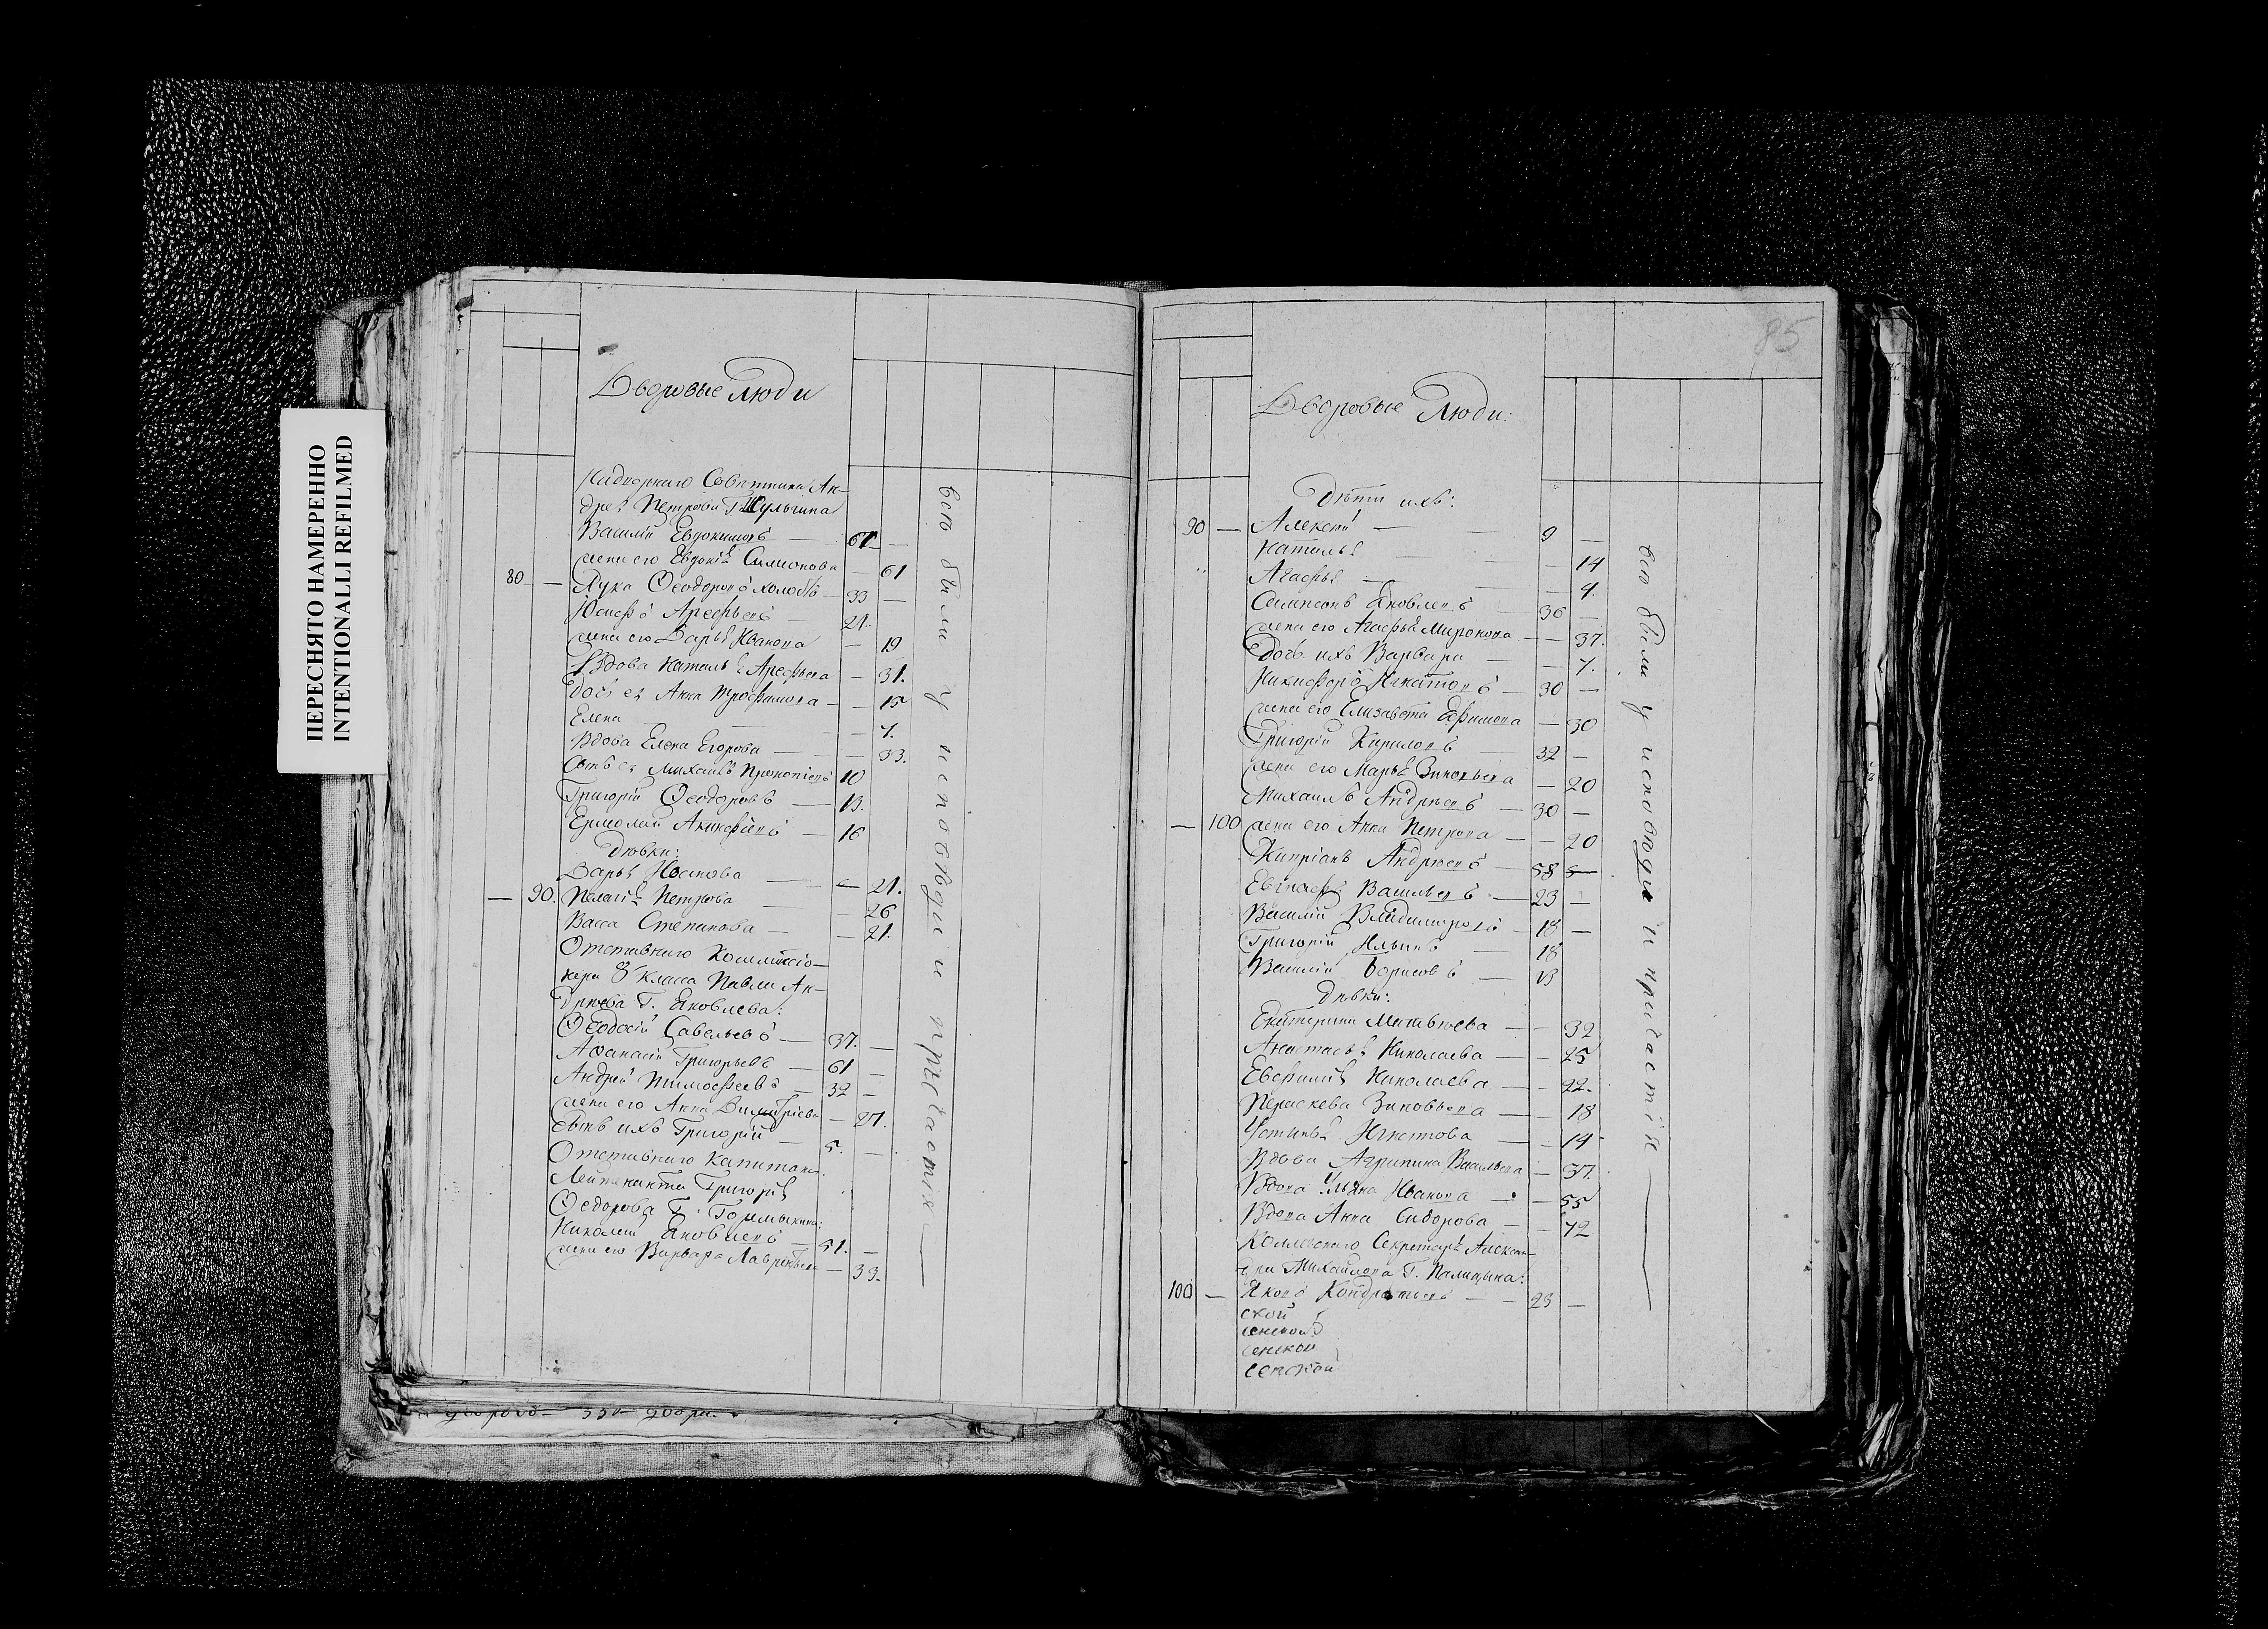 ПЕРЕСНЯТО НАМЕРЕННО
INTENTIONALLI REFILMED
Дворовые Люди
Надворнаго Советника Ан-
дрея Петрова Г. Шульгина
Василій Евдокимовъ — 61 —
жена его Евдокія Симионова — 61
80 — Лука Ѳеодоровъ холостъ — 33 —
Іосифъ Арефьевъ 21.
жена его Дарья Иванова — 19
Вдова Наталья Арефьева — 31.
дочь ея Анна Трофимова — — 15
Елена — — 7.
Вдова Елена Егорова — — 33.
Сынъ ея Михаилъ Прокопіевъ 10
Григорій Ѳеодоровъ — 13.
Ермолай — 16
Дѣвки:
Дарья Иванова — — 21.
— 90. Пелагія Петрова — 26
Васса Степанова — — 21.
Отставнаго Коммисіо-
нера 8 класса Павла Ан-
дреева Г. Яковлева:
Ѳеодосій Савельевъ — 37. —
Аѳанасій Григорьевъ — 61 —
Андрей Тимофеевъ — 32 —
жена его Анна Димитріева — 27.
Сынъ ихъ Григорій — 5. —
Отставнаго Капитана
Лейтенанта Григорія
Ѳедорова Г. Горемыкина:
Николай Яковлевъ — 51. —
жена его Варвара Лаврентьева — 33.
всѣ были у исповѣди и причастія —
85
Дворовые Люди:
Дѣти ихъ:
90 — Алексѣй — 9 —
Наталья — — 14
Агафья — — 4.
Сампсонъ Яковлевъ 36 —
жена его Агафья Миронова — — 37.
дочь ихъ Варвара — — 7.
Никифоръ Игнатовъ — 30 —
жена его Елизавета Ефимова — 30
Григорій Кириловъ 32 —
жена его Марья Зиновьева — 20
Михаилъ Андреевъ — 30 —
— 100 жена его Анна Петрова — — 20
Кипріанъ Андреевъ — 58 —
Евграфъ Васильевъ — 23 —
Василій Владимировъ — 18 —
Григорій Ильинъ — 18
Василій Борисовъ — 13
Дѣвки:
Екатерина Матвѣева — — 32
Анастасья Николаева — — 25
Евфимія Николаева — — 22.
Параскева Зиновьева — — 18
Устинья Игнатова — — 14
Вдова Агрипина Васильева — 37.
Вдова Ульяна Иванова — — 55
Вдова Анна Сидорова — — 72
Коллежскаго Секретаря Алексан-
дра Михайлова Г. Палицына:
100 — Яковъ Кондратьевъ — — 23 —
ской
женской
сенской
всѣ были у исповѣди и причастія —
дворовъ — 550 двора.